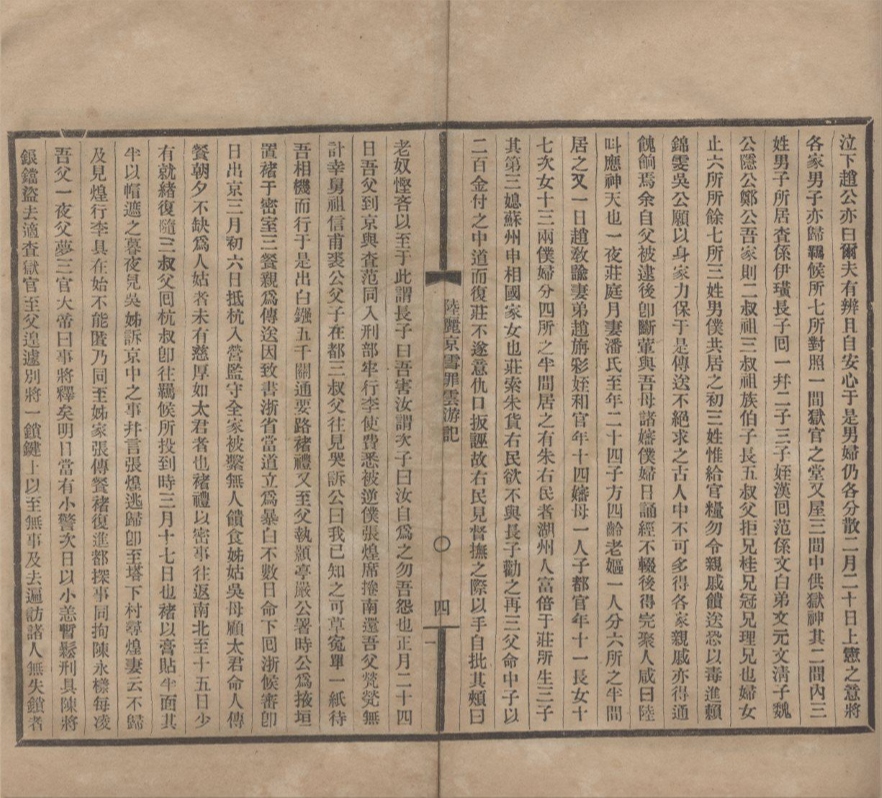 泣下趙公亦曰爾夫有辨且自安心于是男婦仍各分散二月二十日上憲之意將
各家男子亦歸羈候所七所對照一間獄官之堂又屋三間中供獄神其二間內三
姓男子所居查係伊璜長子回一幷二子三子姪漢回范係文白弟文元文淸子魏
公隱公鄭公吾家則二叔祖三叔祖族伯子長五叔父拒兄桂兄冠兄理兄也婦女
止六所所餘七所三姓男僕共居之初三姓惟給官糧勿令親戚饋送恐以毒進賴
錦雯吳公願以身家力保于是傳送不絕求之古人中不可多得各家親戚亦得通
餽餉焉余自父被逮後卽斷葷與吾母諸嬸僕婦日誦經不輟後得完聚人咸曰陸
叫應神天也一夜莊庭月妻潘氏至年二十四子方四齡老嫗一人分六所之半間
居之又一日趙敎諭妻弟趙旃彩姪和官年十四嬸母一人子都官年十一長女十
七次女十三兩僕婦分四所之半間居之有朱右民者湖州人富倍于莊所生三子
其第三媳蘇州申相國家女也莊索朱貨右民欲不與長子勸之再三父命中子以
二百金付之中道而復莊不遂意仇口扳誣故右民見督撫之際以手自批其頰曰
陸麗京雪罪雲游記
〇
四
老奴慳吝以至于此謂長子曰吾害汝謂次子曰汝自爲之勿吾怨也正月二十四
日吾父到京與査范同入刑部牢行李使費悉被逆僕張煌席捲南還吾父煢煢無
計幸舅祖信甫裘公父子在都三叔父往見哭訴公曰我已知之可草寃單一紙待
吾相機而行于是出白鏹五千關通要路褚禮又至父執顥亭嚴公署時公爲掖垣
置褚于密室三餐親爲傳送因致書浙省當道立爲暴白不數日命下回浙候審卽
日出京三月初六日抵杭入營監守全家被繫無人饋食姊姑吳母顧太君命人傳
餐朝夕不缺爲人姑者未有慈厚如太君者也褚禮以密事往返南北至十五日少
有就緒復隨三叔父回杭叔卽往羈候所投到時三月十七日也褚以膏貼半面其
半以帽遮之暮夜見吳姊訴京中之事幷言張煌逃歸卽至塔下村尋煌妻云不歸
及見煌行李具在始不能匿乃同至姊家張傳餐褚復進都探事同拘陳永檍每凌
吾父一夜父夢三官大帝曰事將釋矣明日當有小警次日以小恙暫鬆刑具陳將
銀鐺盜去適査獄官至父遑遽別將一鎖鍵上以至無事及去遍訪諸人無失鎖者